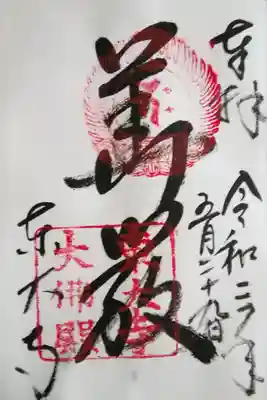 奉拝
令和二年
五月二十九日
華厳
東大寺
東大寺
大佛殿